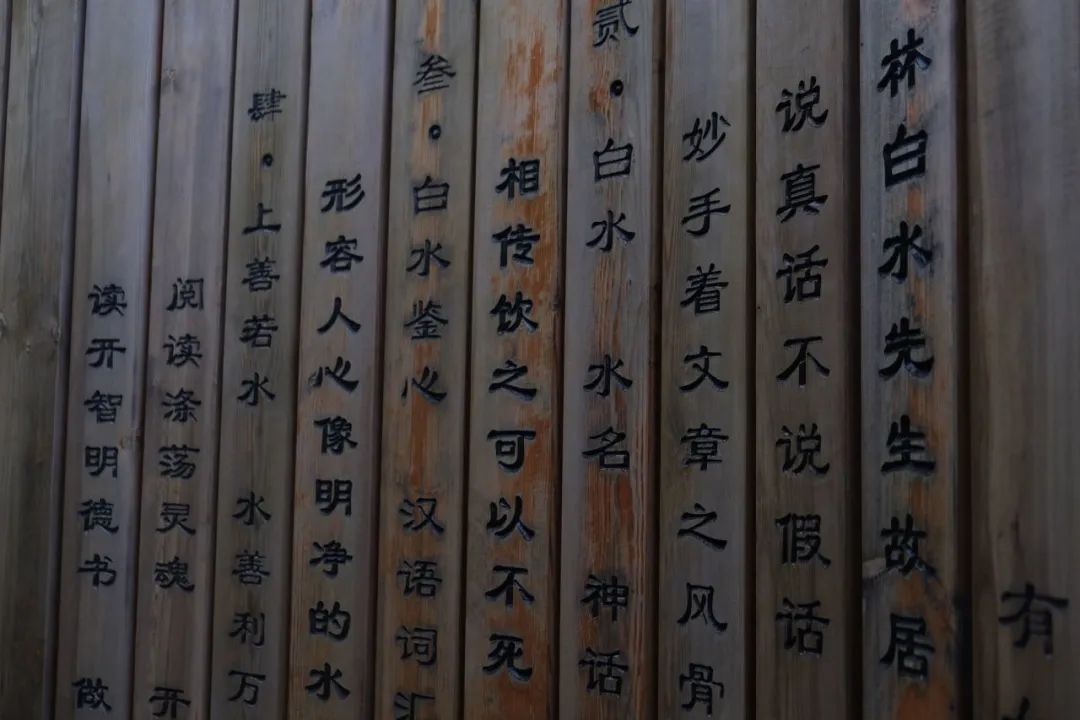 有
林白水先生故居
说真话不说假话
妙手着文章之风骨
贰。白水 水名 神话
相传饮之可以不死
叁。白水鉴心 汉语词汇
形容人心像明净的水
肆。上善若水 水善利万
阅读涤荡灵魂 开
读开智明德书 做